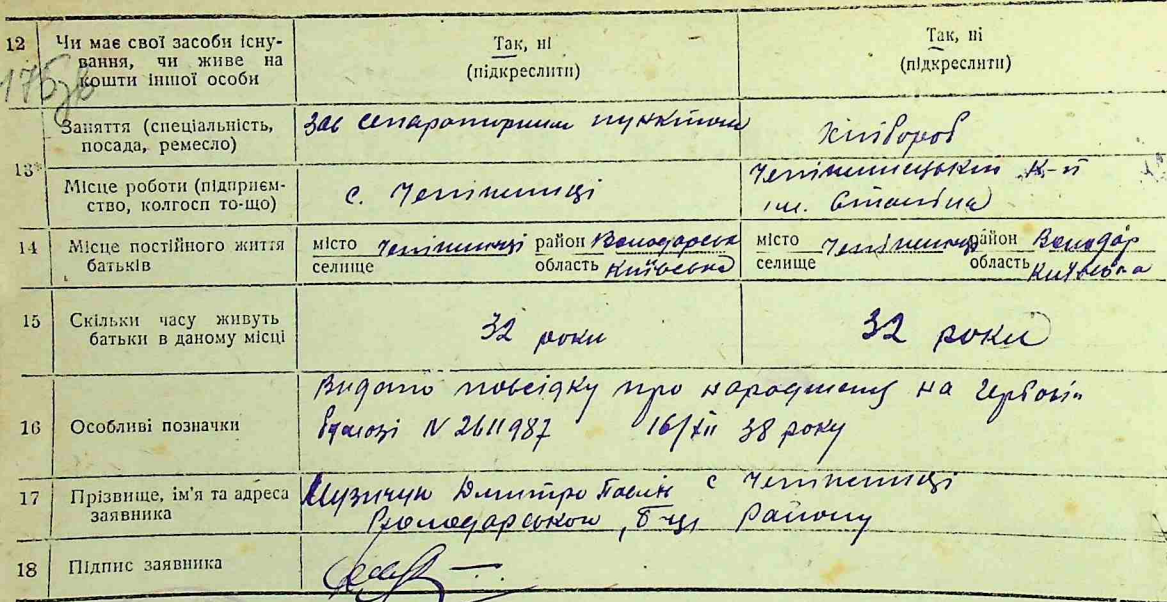 12 Чи має свої засоби існу-
вання, чи живе на
кошти іншої особи
Так, ні
(підкреслити)
Так, ні
(підкреслити)
175зв
13* Заняття (спеціальність,
посада, ремесло)
Зав сепараторним пунктом
Хлібороб
Місце роботи (підприєм-
ство, колгосп то-що)
с. Чепіжинці
Чепіжинцький К-п
ім. Сталіна
14 Місце постійного життя
батьків
місто Чепіжинці район Володарськ
селище область Київська
місто Чепіжинці район Володар
селище область Київська
15 Скільки часу живуть
батьки в даному місці
32 роки
32 роки
16 Особливі позначки
Видано посвідку про народження на гербовім
бланкі N 2611987 16/XII 38 року
17 Прізвище, ім'я та адреса
заявника
Музичук Дмитро с Чепіжинці
Володарського району
18 Підпис заявника